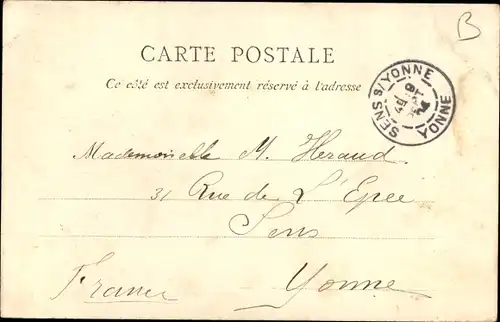 B
CARTE POSTALE
Ce côté est exclusivement réservé à l'adresse
SENS S/YONNE
YONNE
Mademoiselle M. Heraud
31 Rue de L'Epee
Sens
France Yonne